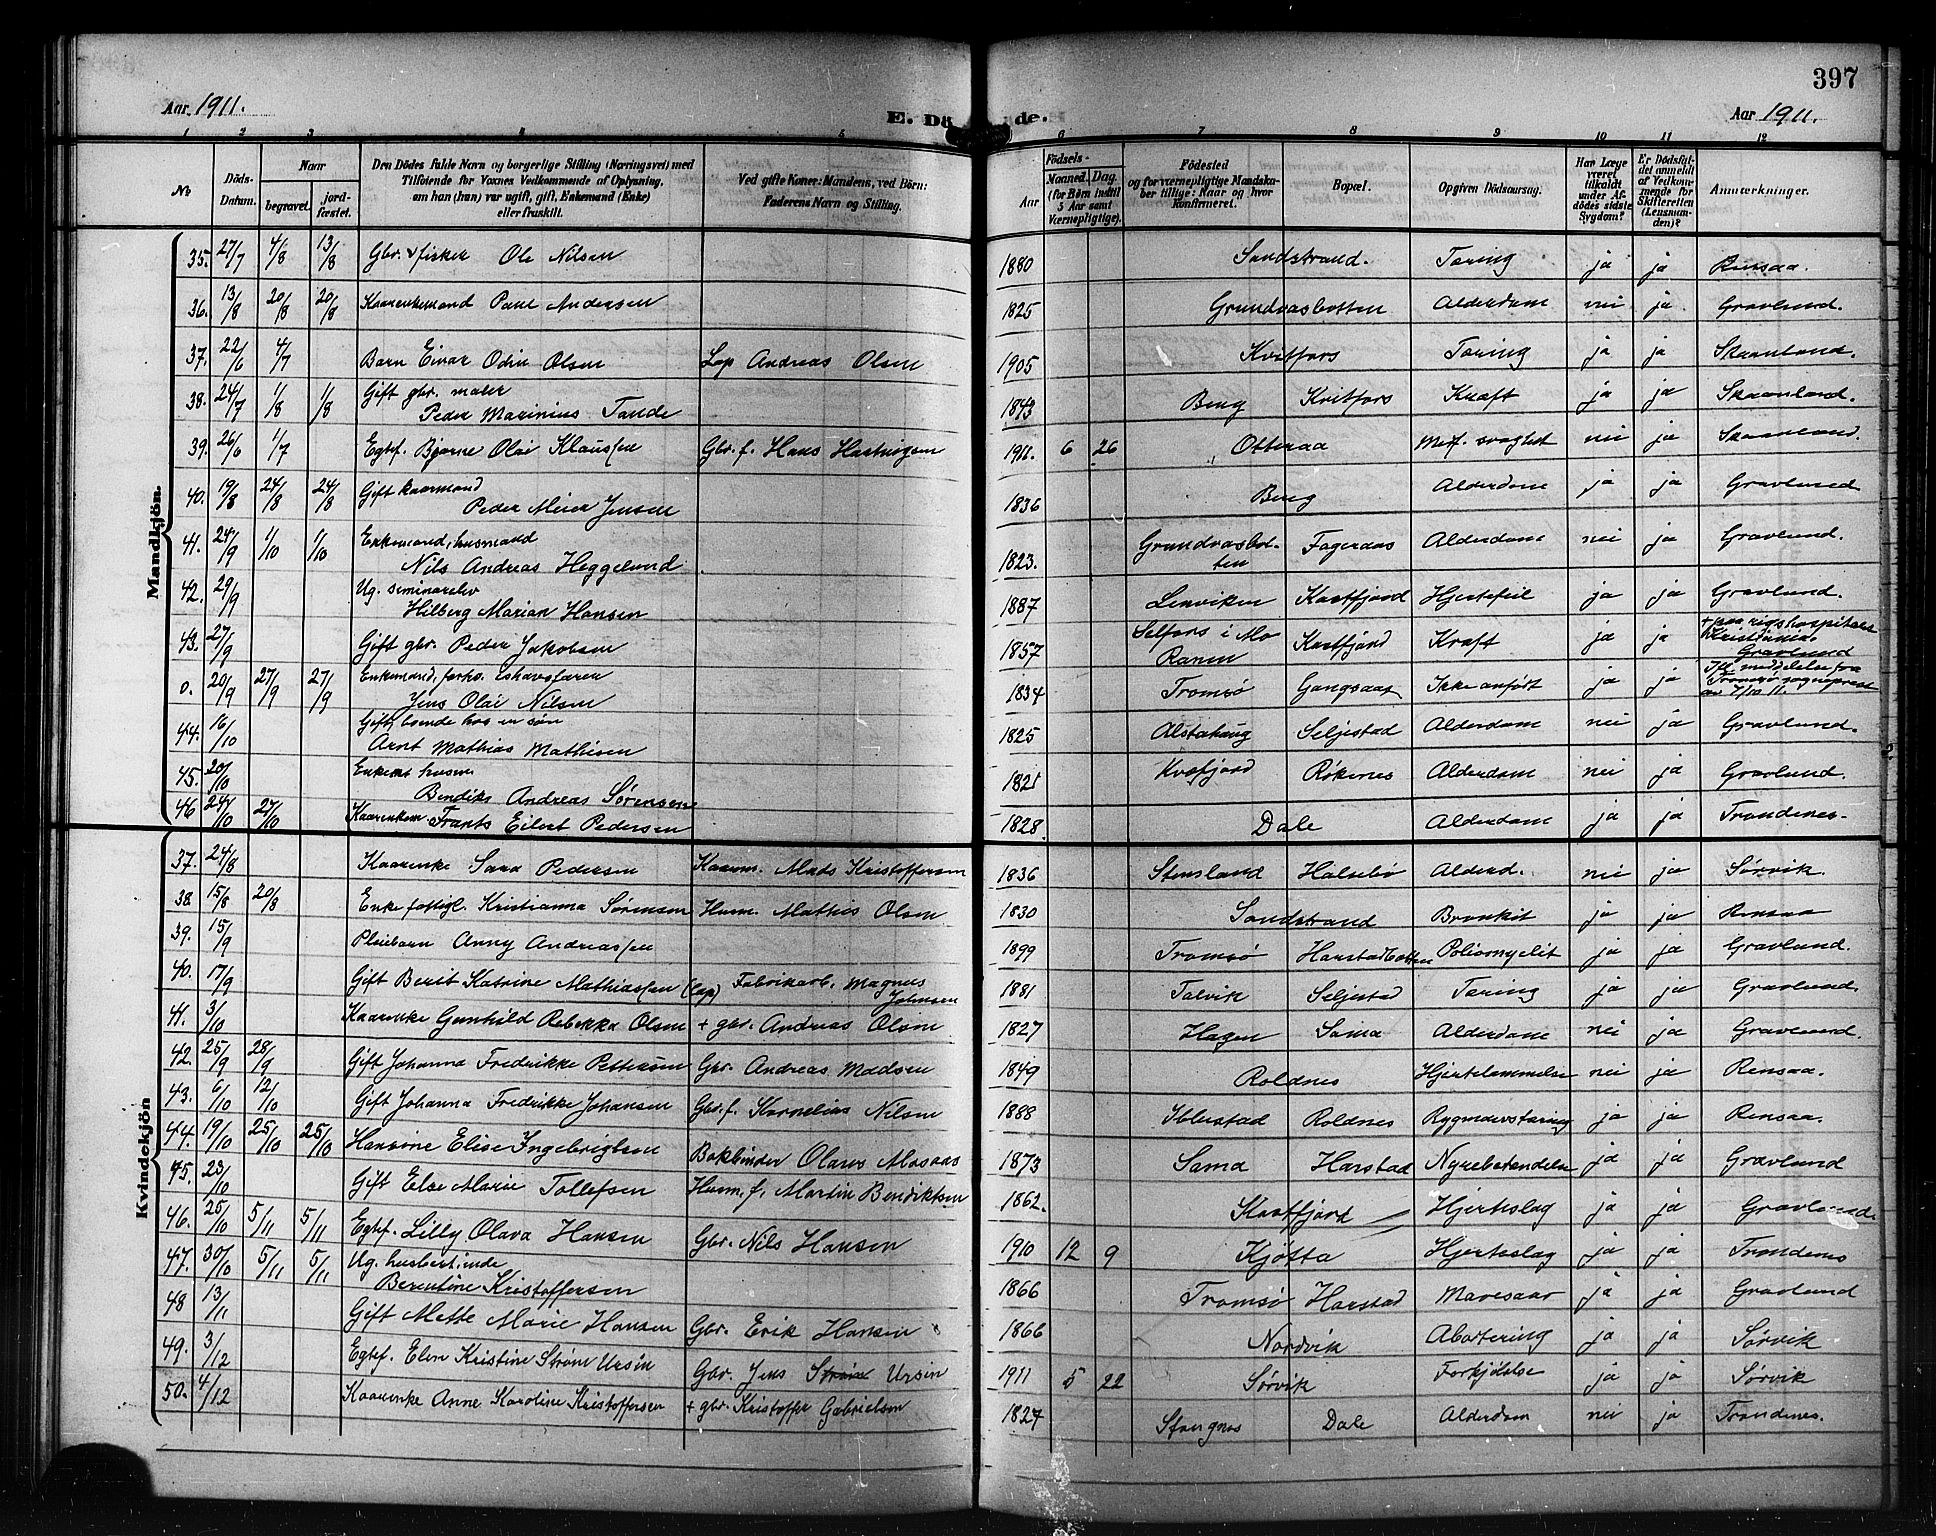 397
Aar 1911. E. Dö de. Aar 1911.
1 2 3 4 5 6 7 8 9 10 11 12
No
Döds-Datum.
Naar
begravet. jord-fæstet.
Den Dödes fulde Navn og borgerlige Stilling (Næringsvei) med
Tilföiende for Voxnes Vedkommende af Oplysning,
om han (hun) var ugift, gift, Enkemand (Enke)
eller fraskilt.
Ved gifte Koner: Mandens, ved Börn:
Faderens Navn og Stilling.
Födsels-
Aar Maaned. Dag.
(for Börn indtil
5 Aar samt
Værnepligtige).
Födested
og for værnepligtige Mandska-
ber tillige: Naar og hvor
Konfirmeret.
Bopæl.
Opgiven Dödsaarsag.
Har Læge
været
tilkaldt
under Af-
dödes sidste
Sygdom?
Er Dödsfal-
det anmeldt
af Vedkom-
mende for
Skifteretten
(Lensman-
den)?
Anmærkninger.
Mandkjön.
35. 27/7 4/8 13/8 Gbr. & fisker Ole Nilsen 1880 Sandstrand. Tæring ja ja Rensaa.
36. 13/8 20/8 20/8 Kaarenkemand Paul Andersen 1825 Grundvasbotten Alderdom nei ja Gravlund.
37. 22/6 4/7 Barn Eivar Odin Olsen Lap Andreas Olsen 1905 Kvitfors Tæring ja ja Skaanland.
38. 24/7 1/8 1/8 Gift gbr. maler
Peder Marinius Tande 1843 Berg Kvitfors Kræft ja ja Skaanland.
39. 26/6 1/7 Egtef. Bjarne Olai Klaussen Gbr. f. Hans 1911. 6 26 Otteraa Medf. svaghet nei ja Skaanland.
40. 19/8 24/8 24/8 Gift kaarmand
Peder Meier Jensen 1836 Berg Alderdom ja ja Gravlund
41. 24/9 1/10 1/10 Enkemand, husmand
Nils Andreas Heggelund 1823. Grundvasbot-
ten Fageraas Alderdom nei ja Gravlund.
42. 29/9 Ug. seminarelev
Hilberg Marian Hansen 1887 Lenviken Kastfjord Hjertefeil ja ja Gravlund.
43. 27/9 Gift gbr. Peder Jakobsen 1857 Selfors i Mo
Ranen Kastfjord Kræft ja ja + paa rigshospitalet
Kristiania.
Gravlund
0. 20/9 27/9 27/9 Enkemand, forhv. ishavsfarer
Jens Olai Nilsen 1834 Tromsø Gangsaas Ikke anført ja ja Ifl. meddelelse fra
Tromsø sogneprest
av 7/10 11.
44. 16/10 Gift, boende hos en søn
Arnt Mathias Mathisen 1825 Alstahaug Seljestad Alderdom nei ja Gravlund.
45. 20/10 Enkemt husm.
Bendiks Andreas Sørensen 1821 Kvæfjord Røkenes Alderdom nei ja Gravlund.
46 24/10 27/10 Kaarenkem Frants Eilert Pedersen 1828. Dale Alderdom ja ja Trondenes.
Kvindekjön
37. 24/8 Kaarenke Sara Pedersen Kaarm. Mads Kristoffersen 1836 Stensland Halsebø Alderd. nei ja Sørvik.
38. 15/8 20/8 Enke fattigl. Kristianna Sørensen Husm. Mathis Olsen 1830 Sandstrand Bronkit ja ja Rensaa
39. 15/9 Pleiebarn Anny Andreassen 1899 Tromsø Harstadbotten Poliomyelit ja ja Gravlund.
40. 17/9 Gift Berit Katrine Mathiassen (lap) Fabrikarb. Magnus
Johnsen 1881 Talvik Seljestad Tæring ja ja Gravlund.
41. 3/10 Kaarenke Gunhild Rebekka Olsen + gbr. Andreas Olsen 1827 Hagen Sama Alderdom nei ja Gravlund.
42. 25/9 28/9 Gift Johanna Fredrikke Pettersen Gbr. Andreas Madsen 1849 Roldnes Hjertelammelse nei ja Rensaa.
43. 6/10 12/10 Gift Johanna Fredrikke Johansen Gbr. f. Kornelius Nilsen 1888 Ibbestad Roldnes Rygmarvstæring ja ja Rensaa.
44. 19/10 25/10 25/10 Hansine Elise Ingebrigtsen Bokbinder Olaus 1873 Sama Harstad Nyrebetendelse ja ja Gravlund
45. 23/10 Gift Else Marie Tollefsen Husm. f. Martin Bendiktsen 1862. Kastfjord Hjerteslag ja ja Gravlund.
46. 25/10 5/11 5/11 Egtef. Lilly Olava Hansen Gbr. Nils Hansen 1910 12 9 Kjøtta Hjerteslag ja ja Trondenes
47. 30/10 5/11 5/11 Ug. husbert.inde
Berentine Kristoffersen 1866 Tromsø Harstad Mavesaar ja ja Gravlund
48 13/11 Gift Mette Marie Hansen Gbr. Erik Hansen 1866 Nordvik Abortering ja ja Sørvik
49. 3/12 Egtef. Elen Kristine Strøm Ursin Gbr. Jens Strøm Ursin 1911 5 22 Sørvik Forkjølelse ja ja Sørvik
50. 4/12 Kaarenke Anne Karoline Kristoffersen + gbr. Kristoffer Gabrielsen 1827 Stangnes Dale Alderdom nei ja Trondenes.